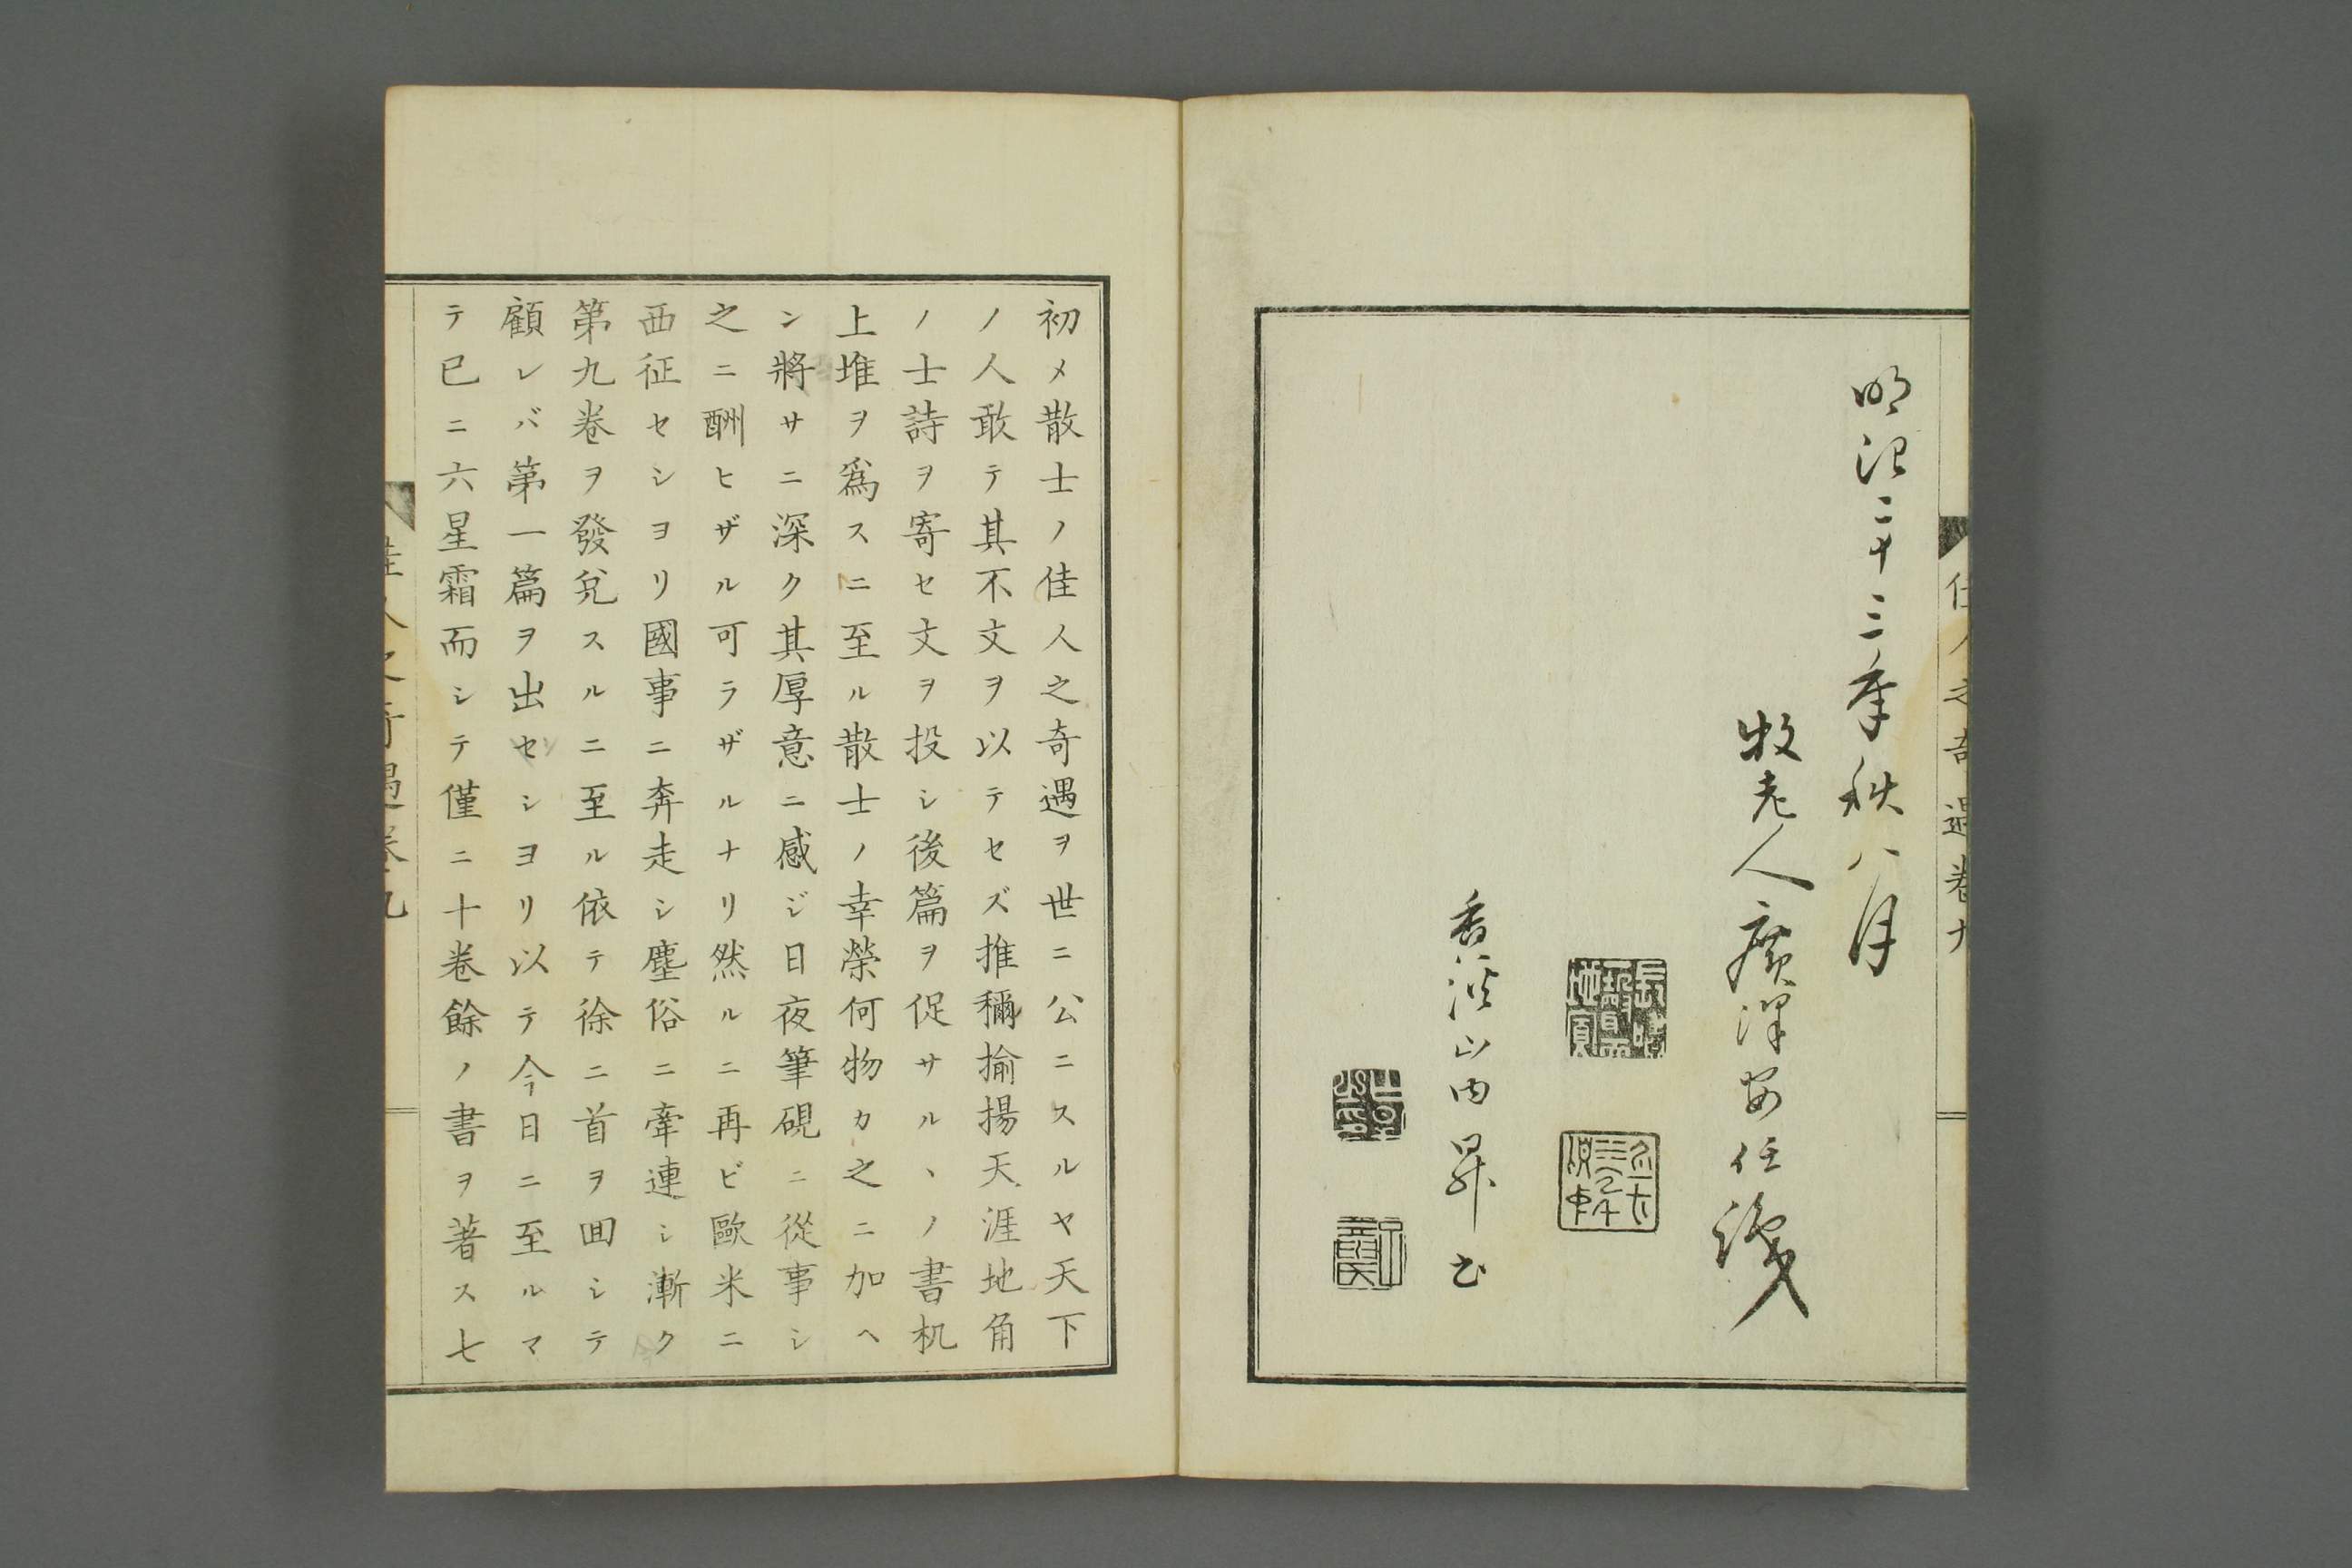 佳人之奇遇卷九
明治二十三季秋八月
牧老人廣澤安任識
香溪山内昇書
初メ散士ノ佳人之奇遇ヲ世ニ公ニスルヤ天下
ノ人敢テ其不文ヲ以テセズ推稱揄揚天涯地角
ノ士詩ヲ寄セ文ヲ投シ後篇ヲ促サルヽノ書机
上堆ヲ爲スニ至ル散士ノ幸榮何物カ之ニ加ヘ
ン將サニ深ク其厚意ニ感ジ日夜筆硯ニ從事シ
之ニ酬ヒザル可ラザルナリ然ルニ再ビ歐米ニ
西征セシヨリ國事ニ奔走シ塵俗ニ牽連シ漸ク
第九卷ヲ發兌スルニ至ル依テ徐ニ首ヲ囬シテ
顧レバ第一篇ヲ出セシヨリ以テ今日ニ至ルマ
テ已ニ六星霜而シテ僅ニ十卷餘ノ書ヲ著ス七
佳人之奇遇卷九